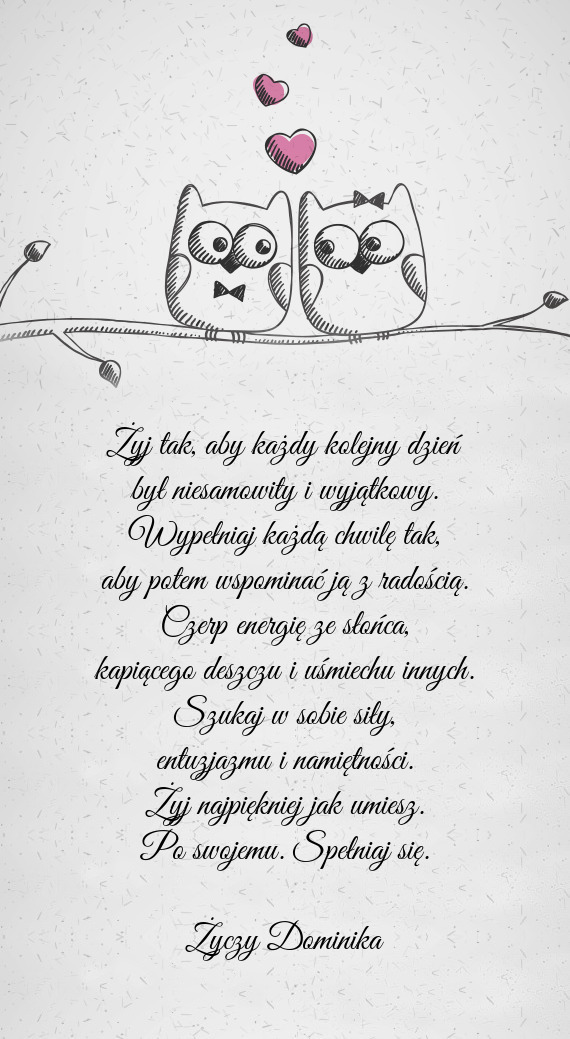 Żyj tak, aby każdy kolejny dzień
był niesamowity i wyjątkowy.
Wypełniaj każdą chwilę tak,
aby potem wspominać ją z radością.
Czerp energię ze słońca,
kapiącego deszczu i uśmiechu innych.
Szukaj w sobie siły,
entuzjazmu i namiętności.
Żyj najpiękniej jak umiesz.
Po swojemu. Spełniaj się.
Życzy Dominika